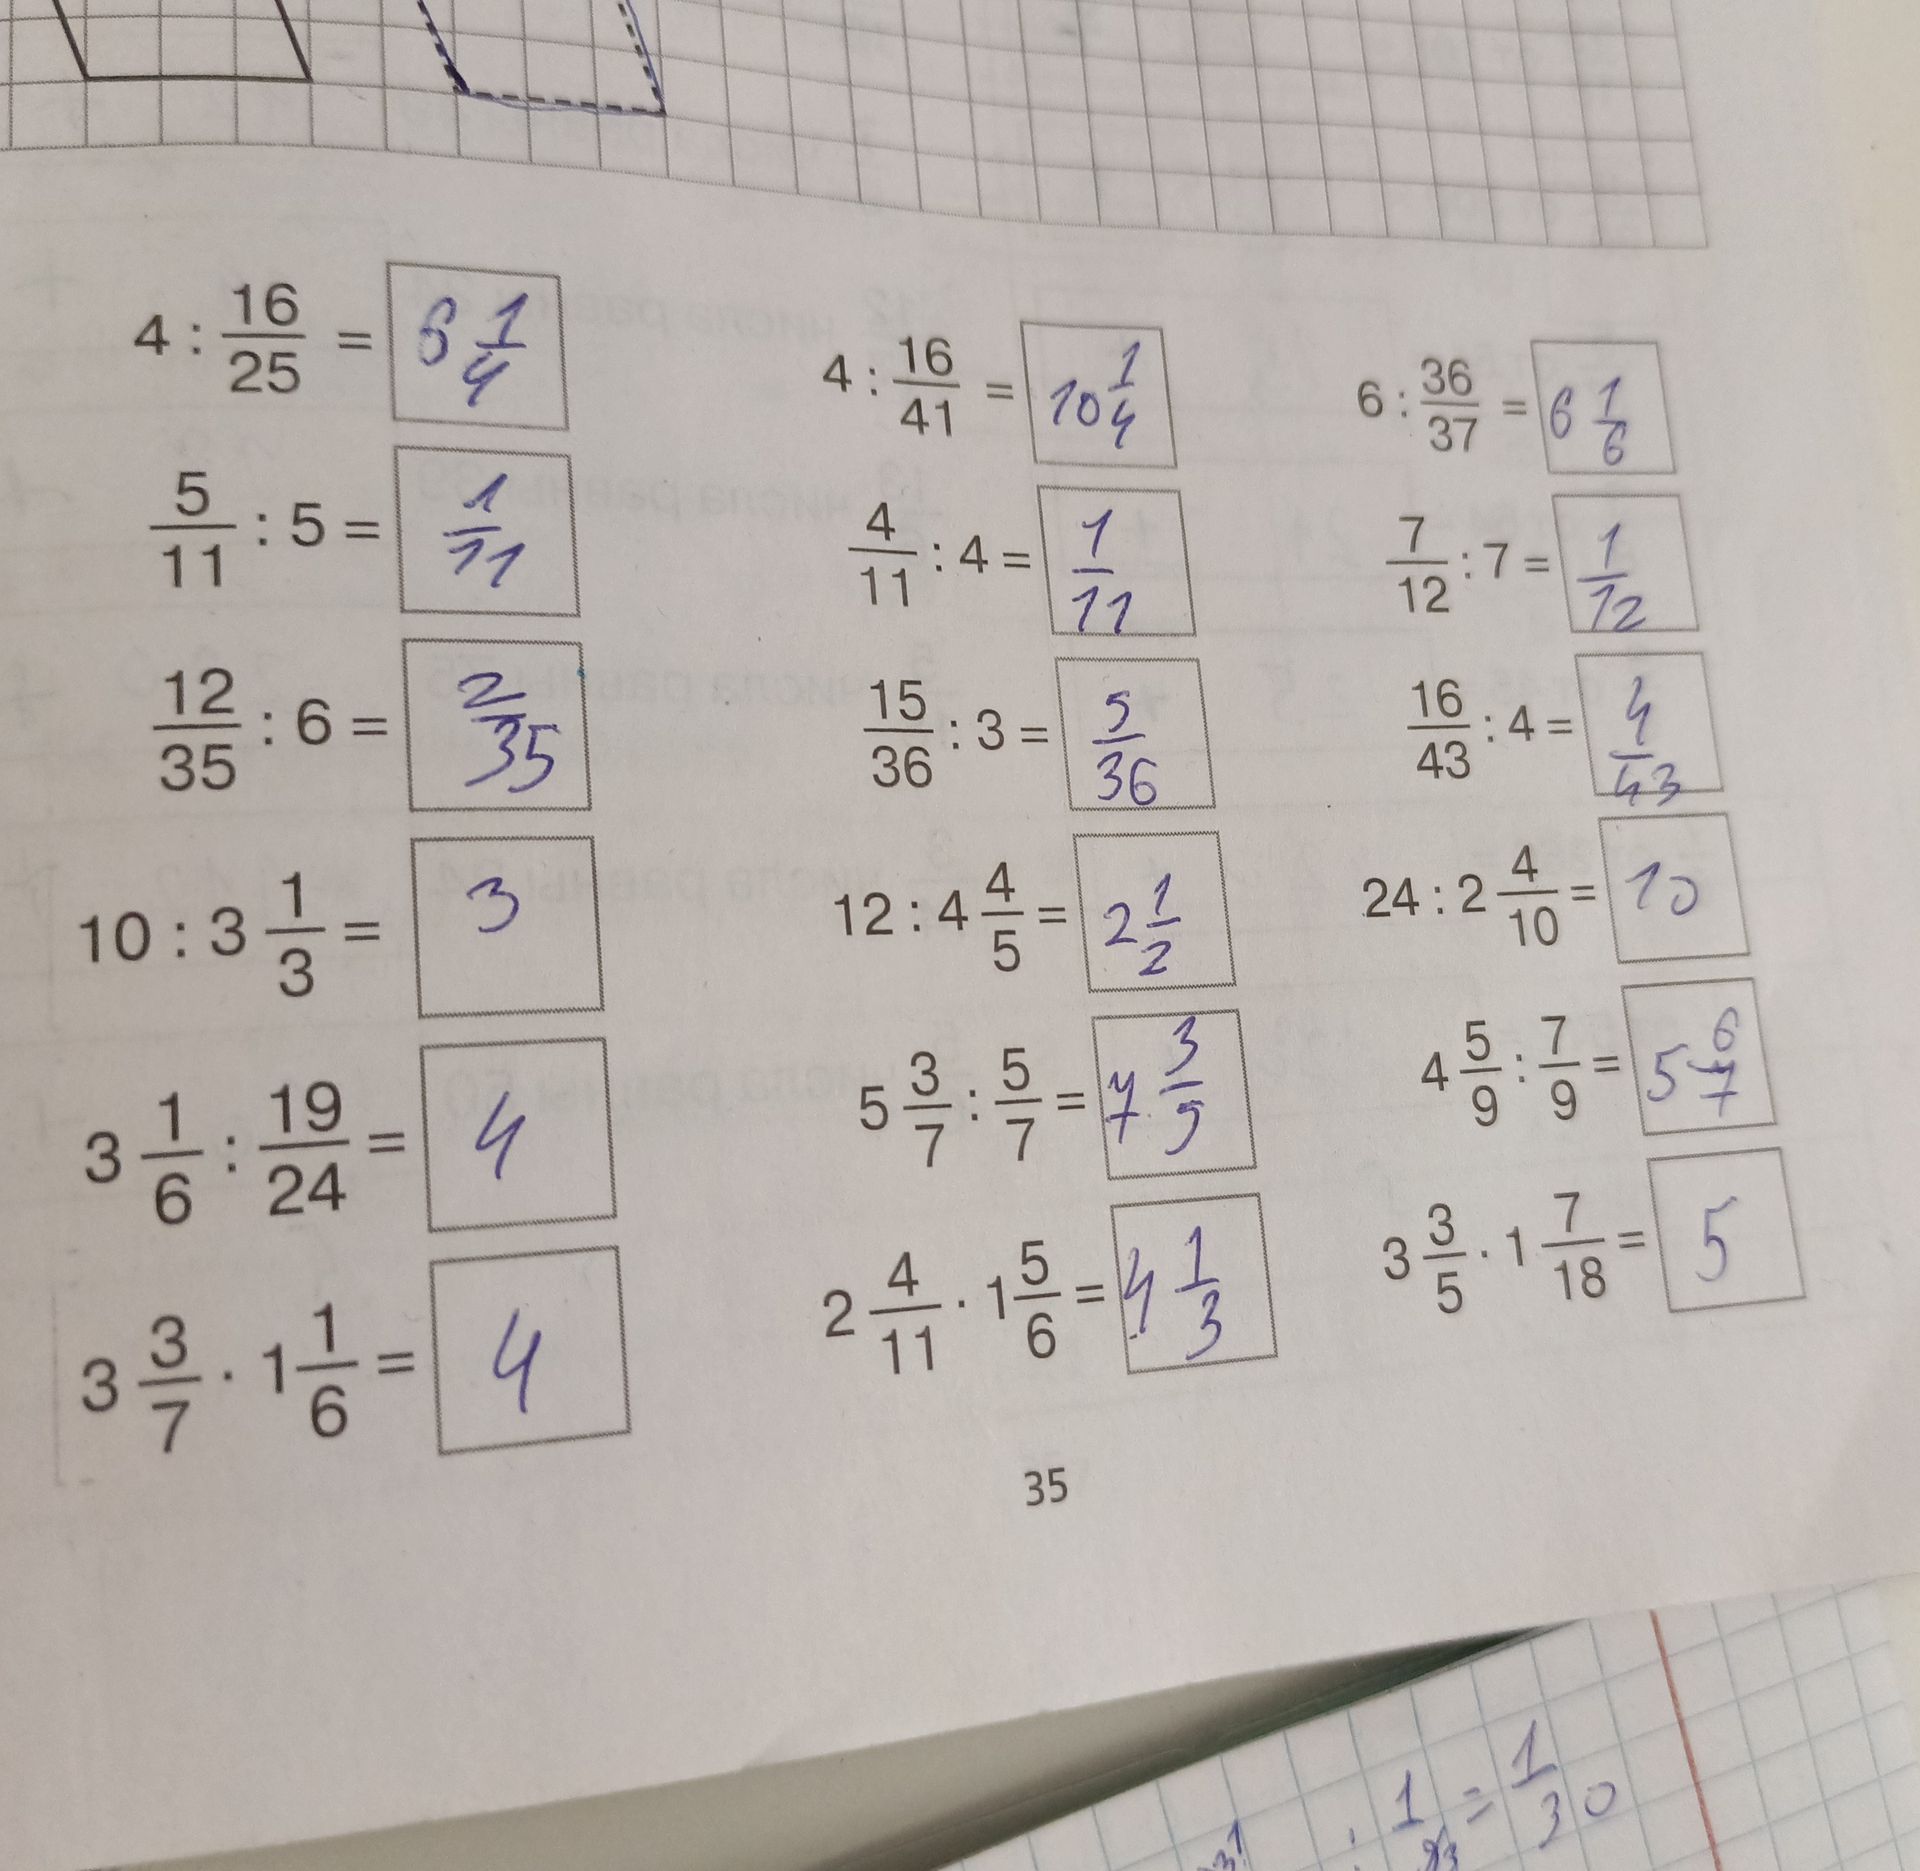 4 : 16/25 = 6 1/4
4 : 16/41 = 10 1/4
6 : 36/37 = 6 1/6
5/11 : 5 = 1/11
4/11 : 4 = 1/11
7/12 : 7 = 1/12
12/35 : 6 = 2/35
15/36 : 3 = 5/36
16/43 : 4 = 4/43
10 : 3 1/3 = 3
12 : 4 4/5 = 2 1/2
24 : 2 4/10 = 10
3 1/6 : 19/24 = 4
5 3/7 : 5/7 = 7 3/5
4 5/9 : 7/9 = 5 6/7
3 3/7 · 1 1/6 = 4
2 4/11 · 1 5/6 = 4 1/3
3 3/5 · 1 7/18 = 5
35
= 1/30